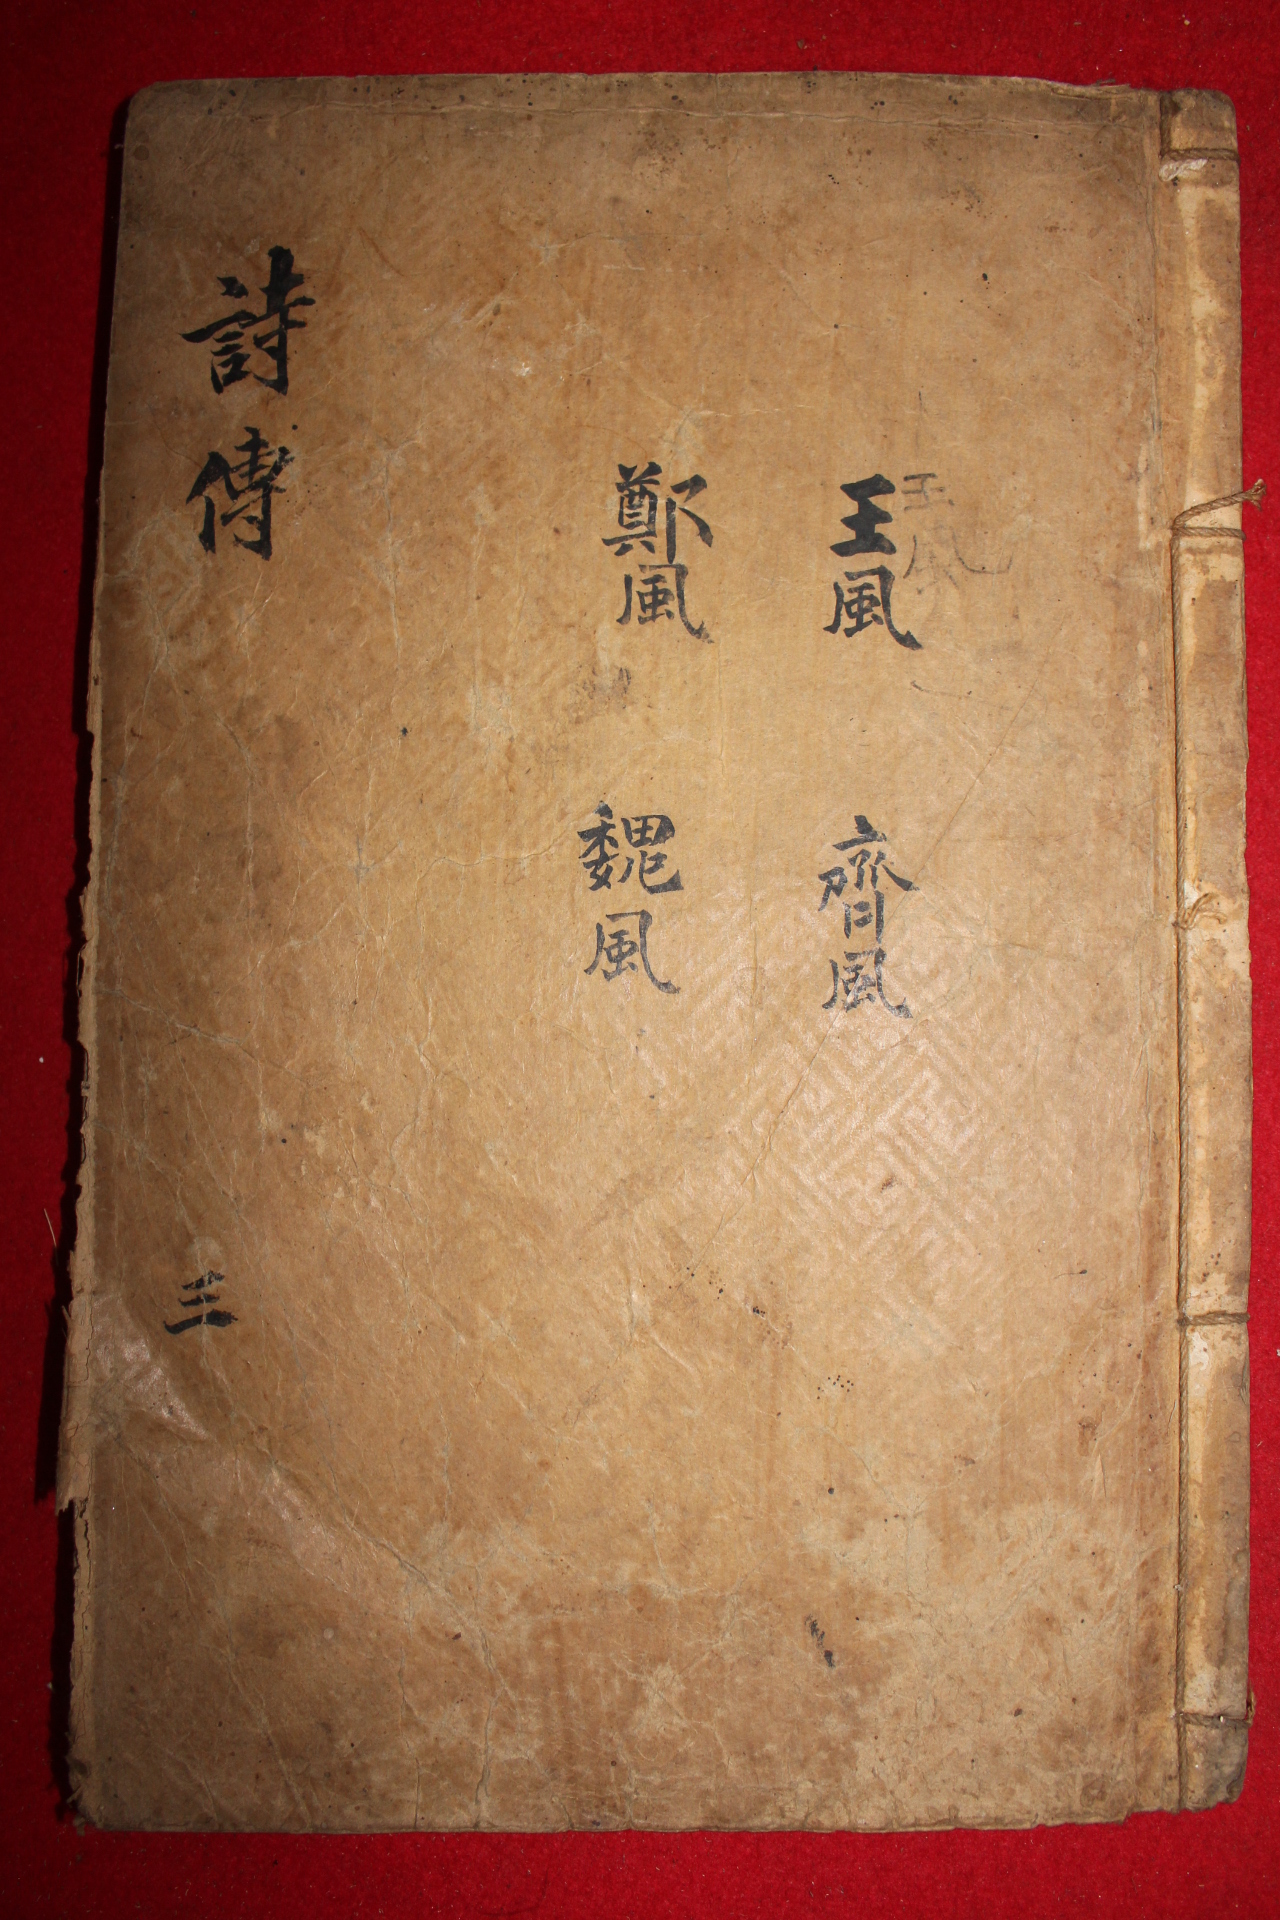 王風
王風
齊風
鄭風
魏風
詩傳
三